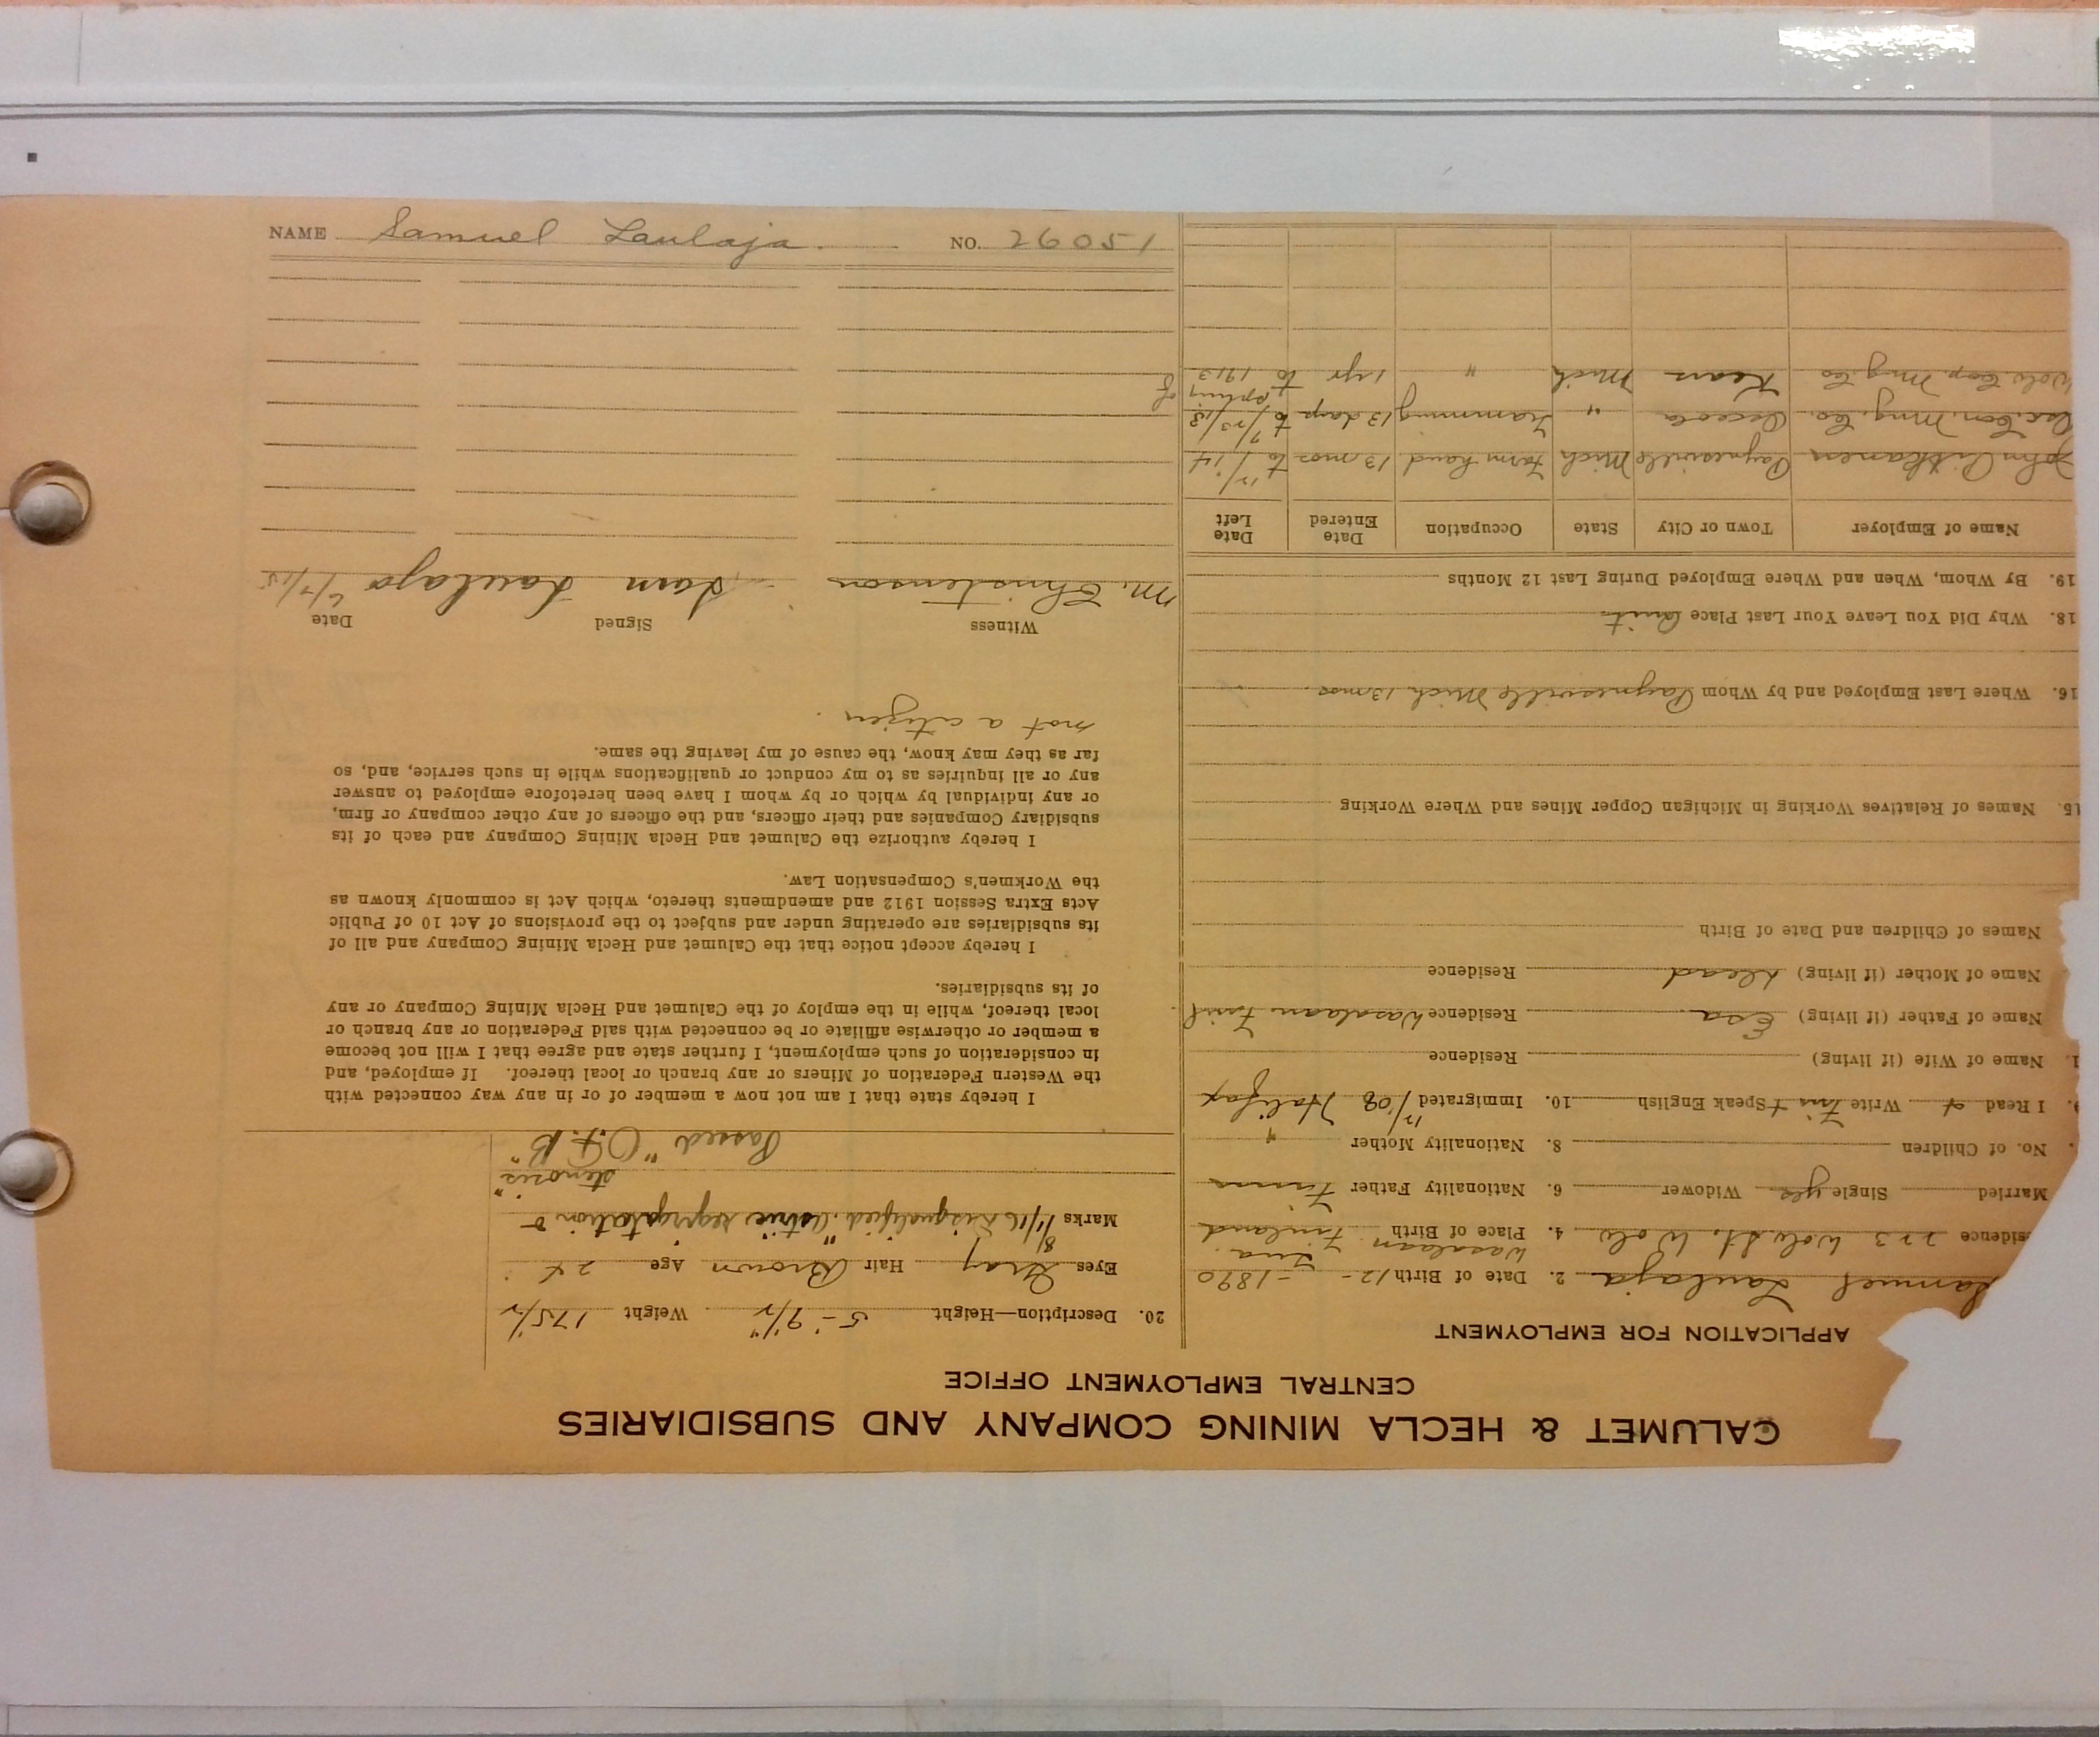 NAME Samuel Laulaja. NO. 26051
CALUMET & HECLA MINING COMPANY AND SUBSIDIARIES
CENTRAL EMPLOYMENT OFFICE
APPLICATION FOR EMPLOYMENT
Samuel Laulaja 2. Date of Birth 12 - - 1890
Residence 223 Wolv. St. Wolv 4. Place of Birth Wasalaan Finland
Married Single yes Widower 6. Nationality Father Finn
No. of Children 8. Nationality Mother "
9. I Read + Write Fin + Speak English 10. Immigrated 12/08 Halifax
1. Name of Wife (if living) Residence
Name of Father (if living) Esa Residence Wasalaan Finl
Name of Mother (if living) dead Residence
Names of Children and Date of Birth
15. Names of Relatives Working in Michigan Copper Mines and Where Working
16. Where Last Employed and by Whom Paynesville Mich 13 mos
18. Why Did You Leave Your Last Place Quit
19. By Whom, When and Where Employed During Last 12 Months
Name of Employer Town or City State Occupation Date Entered Date Left
John Paynesville Mich Farm hand 13 mos to 12/14
Osc. Con. Mng. Co. Osceola " Tramming 13 days to 7/23/13
Wolv. Cop. Mng. Co Kears Mich " 1 yr to spring of 1913
20. Description—Height 5-9 1/2" Weight 175 1/2
Eyes Gray Hair Brown Age 24
Marks 8/1/16 Disqualified
Passed
I hereby state that I am not now a member of or in any way connected with
the Western Federation of Miners or any branch or local thereof. If employed, and
in consideration of such employment, I further state and agree that I will not become
a member or otherwise affiliate or be connected with said Federation or any branch or
local thereof, while in the employ of the Calumet and Hecla Mining Company or any
of its subsidiaries.
I hereby accept notice that the Calumet and Hecla Mining Company and all of
its subsidiaries are operating under and subject to the provisions of Act 10 of Public
Acts Extra Session 1912 and amendments thereto, which Act is commonly known as
the Workmen's Compensation Law.
I hereby authorize the Calumet and Hecla Mining Company and each of its
subsidiary Companies and their officers, and the officers of any other company or firm,
or any individual by which or by whom I have been heretofore employed to answer
any or all inquiries as to my conduct or qualifications while in such service, and, so
far as they may know, the cause of my leaving the same.
not a citizen.
Witness Signed Date
M. Christenson Sam Laulaja